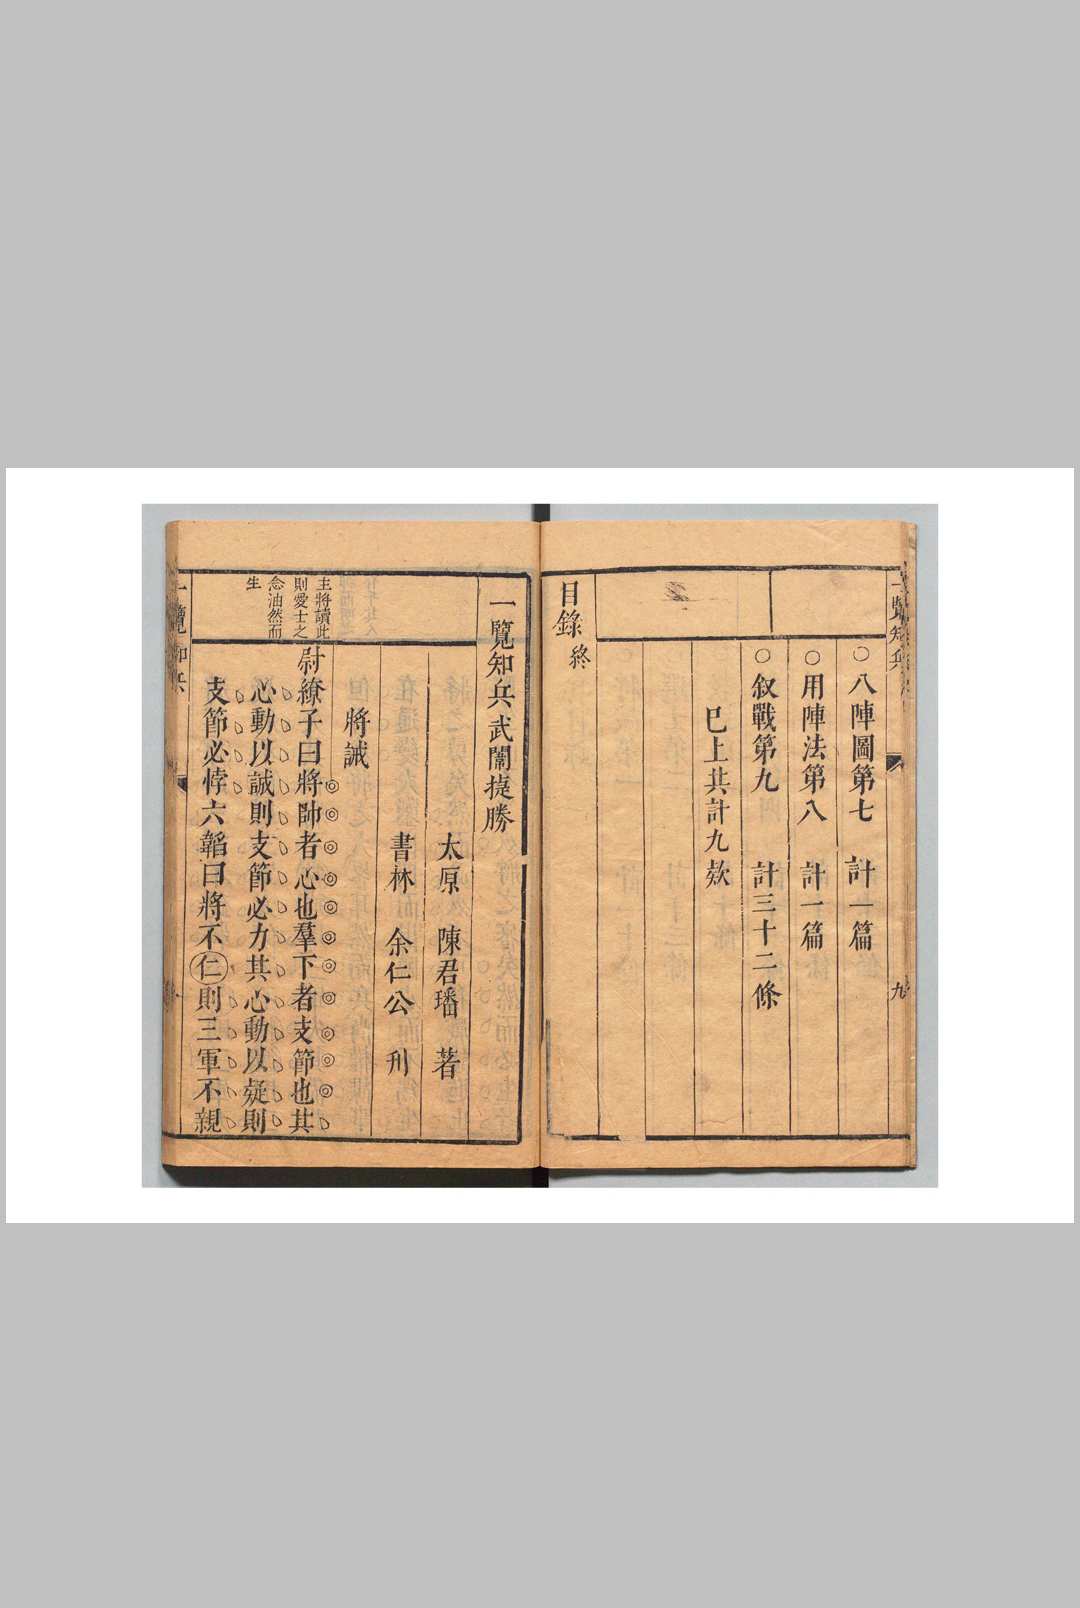 一覽知兵
九
○八陣圖第七 計一篇
○用陣法第八 計一篇
○叙戰第九 計三十二條
巳上共計九欵
目錄終
一覽知兵武闈㨗勝
太原 陳君璠 著
書林 余仁公 刋
將誡
主將讀此
則愛士之
念油然而
生
尉繚子曰將帥者心也羣下者支節也其
心動以誠則支節必力其心動以疑則
支節必悖六韜曰將不仁則三軍不親
一覽知兵